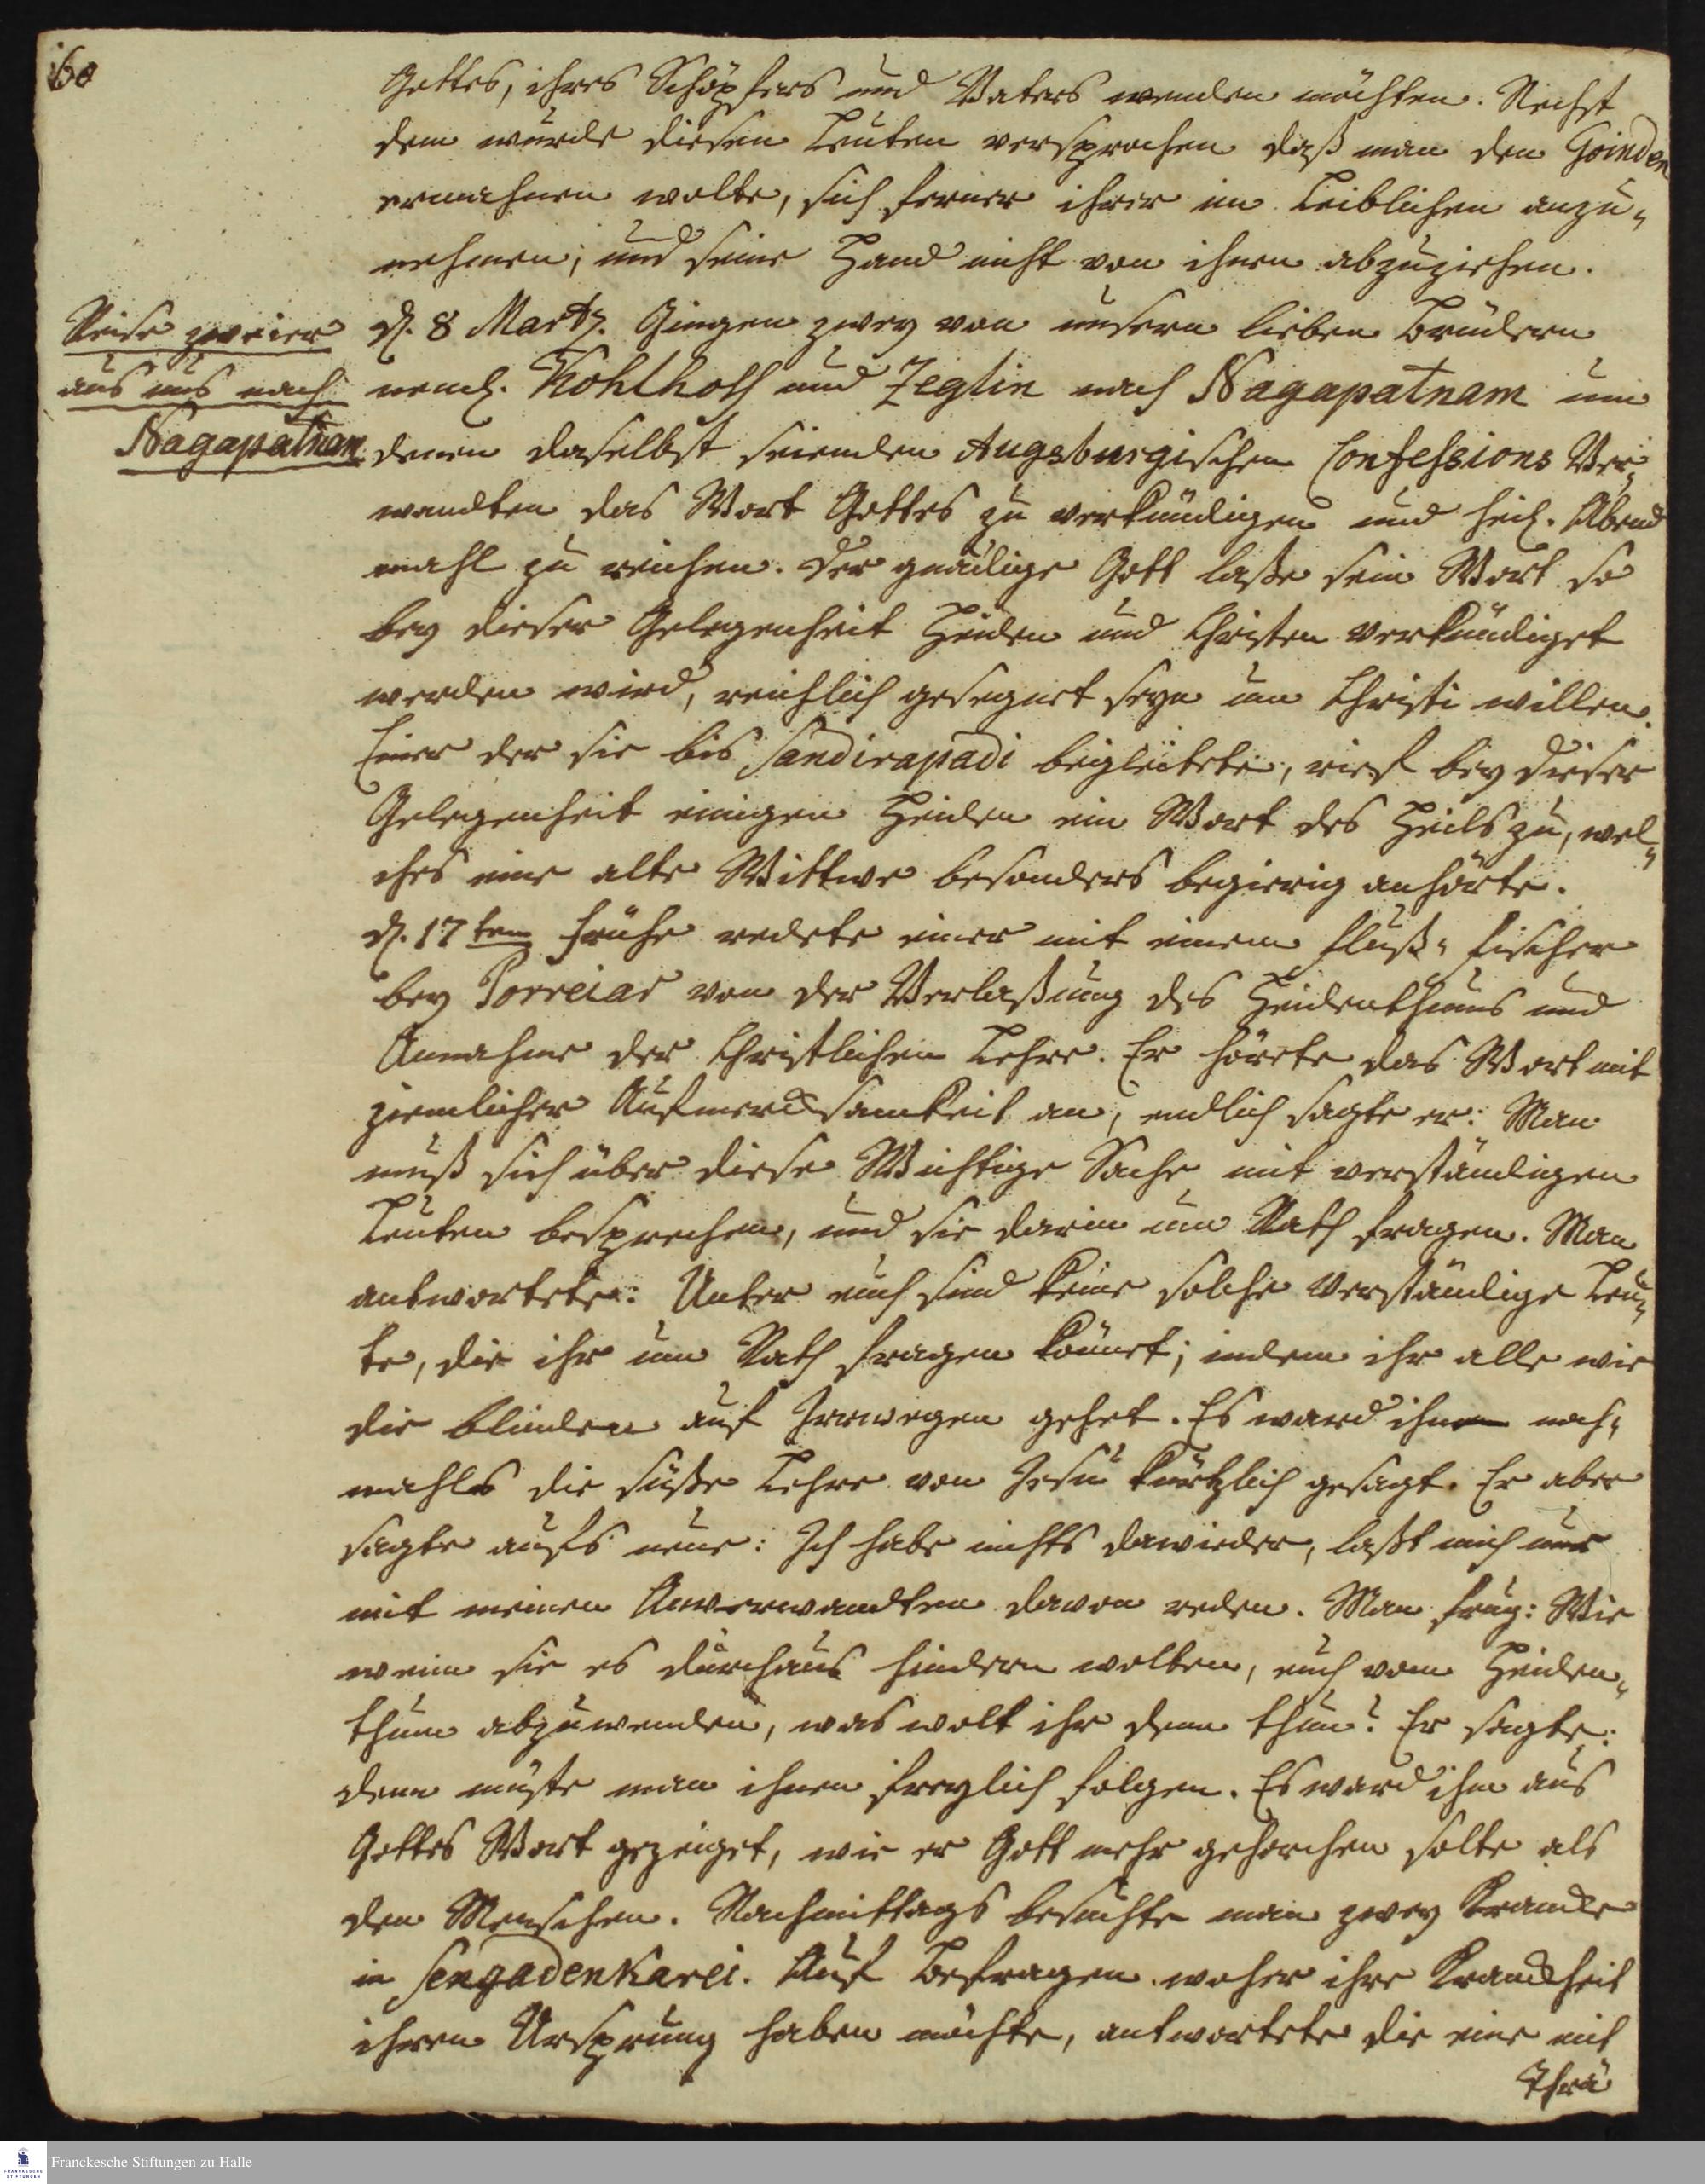 60
Gottes, ihres Schöpfers und Vaters wenden möchten. Nechst
dem wurde diesen Leuten versprochen daß man den Goinden
ermahnen wolte, sich ferner ihrer im Leiblichen anzu-
nehmen, und seine Hand nicht von ihnen abzuziehen.
Reise zweier
aus uns nach
Nagapatnam.
d. 8 Martz. Gingen zwey von unsern lieben Brüdern
neml. Kohlhoff und Zeglin nach Nagapatnam um
denen daselbst seienden Augsburgischen Confessions Ver-
wandten das Wort Gottes zu verkündigen und heil. Abend
mahl zu reichen. Der gnädige Gott laße sein Wort so
bey dieser Gelegenheit Heiden und Christen verkündiget
werden wird, reichlich gesegnet seyn um Christi willen.
Einer der sie bis Sandirapadi begleitete, rief bey dieser
Gelegenheit einigen Heiden ein Wort des Heils zu, wel-
ches eine alte Wittwe besonders begierig anhörte.
d. 17ten frühe redete einer mit einem Fluß-Fischer
bey Porreiar von der Verlaßung des Heidenthums und
Annahme der Christlichen Lehre. Er hörete das Wort mit
ziemlicher Aufmercksamkeit an, endlich sagte er: Man
muß sich über diese Wichtige Sache mit verständigen
Leuten besprechen, und sie darin um Rath fragen. Man
antwortete: Unter euch sind keine solche Verständige Leu-
te, die ihr um Rath fragen könnet; indem ihr alle wie
die blinden auf Irrwegen gehet. Es ward ihm noch-
mahls die süße Lehre von Jesu kürtzlich gesagt. Er aber
sagte aufs neue: Ich habe nichts dawieder, laßt mich nur
mit meinen Anverwandten davon reden. Man frug: Wie
wenn sie es durchaus hindern wolten, euch vom Heiden-
thum abzuwenden, was wolt ihr denn thun? Er sagte:
denn müste man ihnen freylich folgen. Es ward ihm aus
Gottes Wort gezeiget, wie er Gott mehr gehorchen solte als
den Menschen. Nachmittags besuchte man zwey Krancke
in Sengadenkarei. Auf Befragen woher ihre Kranckheit
ihren Ursprung haben möchte, antwortete die eine mit
Thrä
Franckesche Stiftungen zu Halle
FRANCKESCHE
STIFTUNGEN